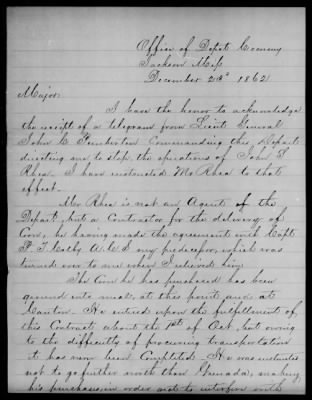 Office of Depot Commsy
Jackson Miss
December 2nd 1862
Major:
I have the honor to acknowledge
the receipt of a telegram from Lieut General
John C Pemberton Commanding this Depart
directing me to stop the operations of John S
Rhea. I have instructed Mr Rhea to that
effect.
Mr Rhea is not an Agent of the
Depart, but a Contractor for the delivery of
Corn, he having made the agreement with Capt
my predecessor, which was
turned over to me when I relieved him
The Corn he has purchased has been
ground into meal, at this point and at
Canton. He entered upon the fulfillment of
this Contract about the 1st of Oct, but owing
to the difficulty of procuring transportation
it has never been Completed. He was instructed
not to go further north than Grenada, making
his purchases, in order not to interfere with